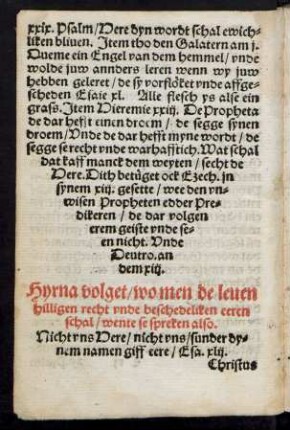 xxix. Psalm/Here dyn wordt schal ewich-
liken bliuen. Item tho den Galatern am j.
Queme ein Engel van dem hemmel/ vnde
wolde juw annders leren wenn wy juw
hebben geleret/ de sy vorflöket vnde affge-
scheden Esaie xl. Alle flesch ys alse ein
graß. Item Hieremie xxiij. De Propheta
de dar hefft einen droem/ de segge synen
droem/ Vnde de dar hefft myne wordt/ de
segge se recht vnde warhafftich. Wat schal
dat kaff manck dem weyten/ secht de
Here. Dith betüget ock Ezech. jn
synem xiij. gesette/ wee den vn-
wisen Propheten edder Pre-
dikeren/ de dar volgen
erem geiste vnde se-
en nicht. Vnde
Deutro. an
dem xiij.
Hyrna volget/ wo men de leuen
hilligen recht vnde beschedeliken eeren
schal/ wente se spreken also.
Nicht vns Here/ nicht vns/ sunder dy-
nem namen giff eere/ Esa. xlij.
Christus